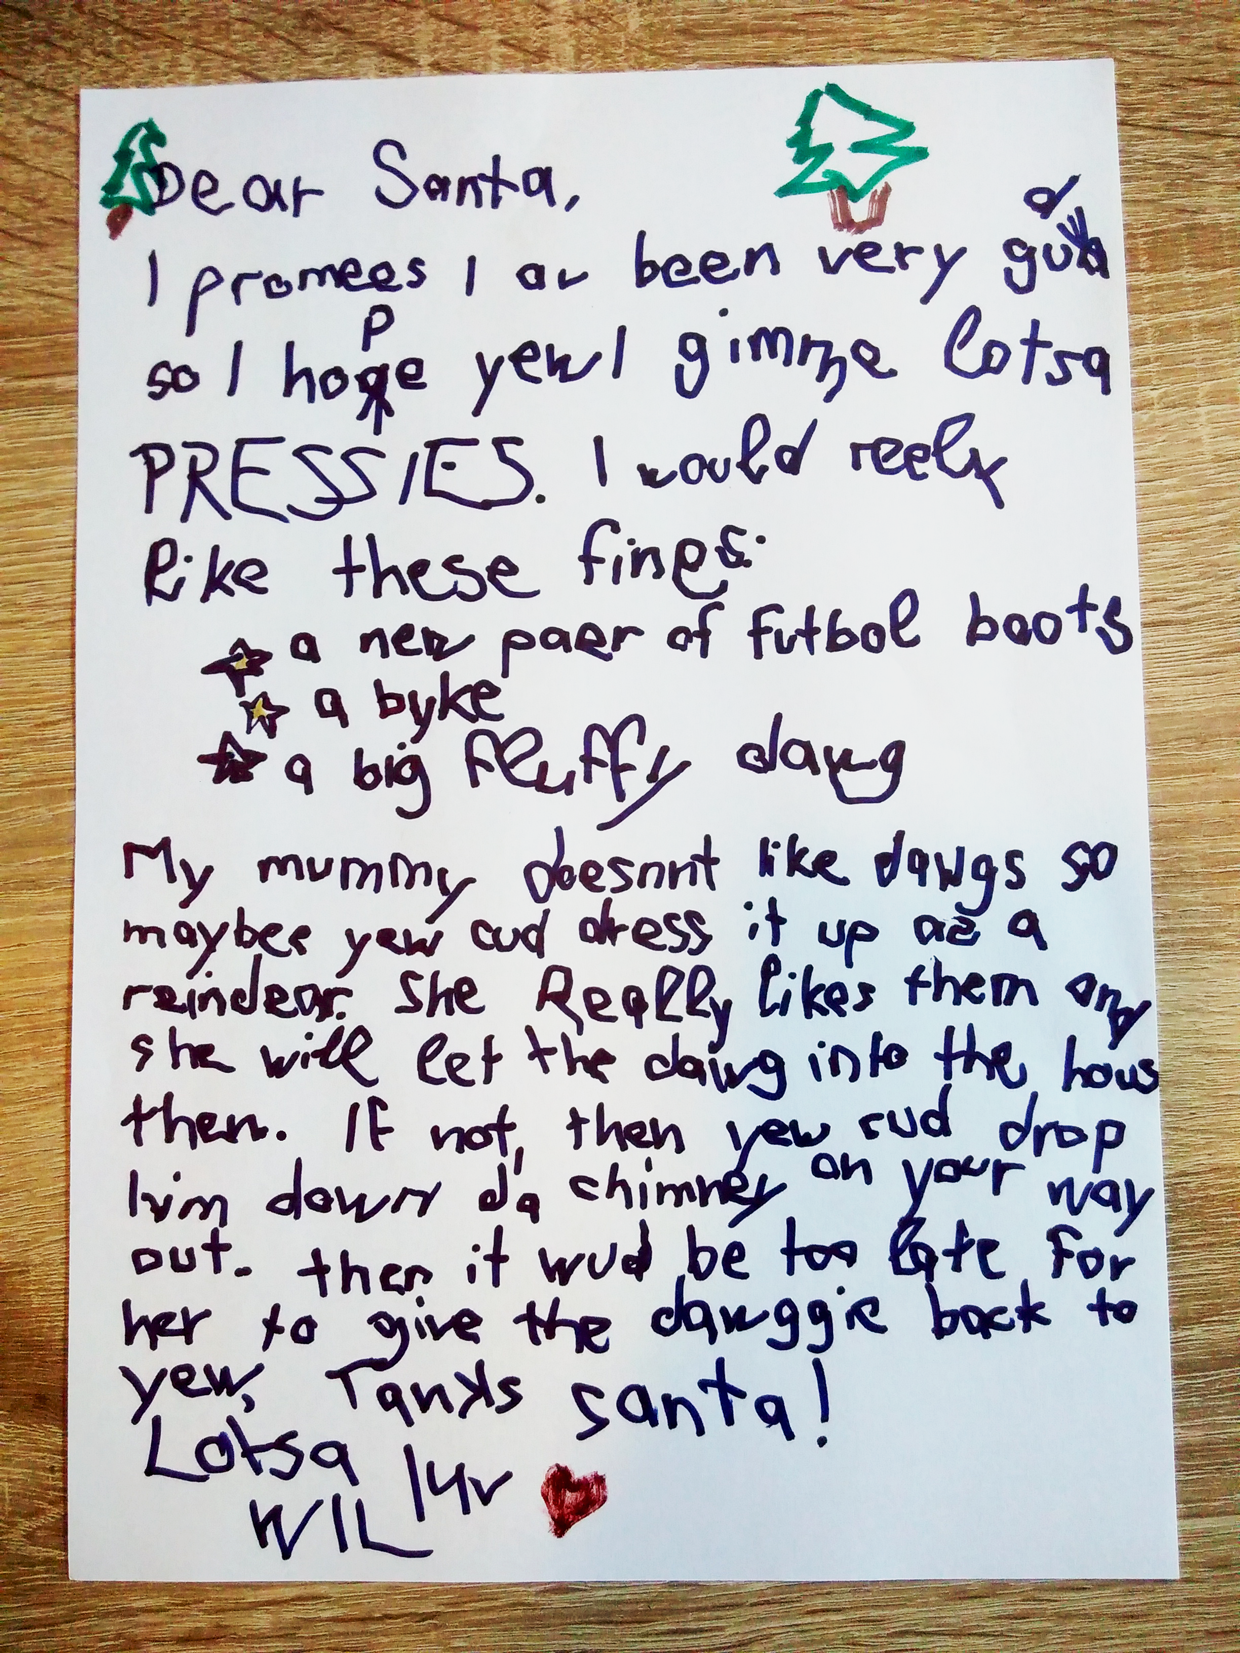 Dear Santa,
I promees I av been very gud
so I hope yewl gimme lotsa
PRESSIES. I would reely
like these fings:
a new paer of futbol boots
a byke
a big fluffy dawg
My mummy doesnnt like dawgs so
maybee yew cud dress it up as a
reindear. She Really likes them and
she will let the dawg into the hous
then. If not, then yew cud drop
him down da chimney on your way
out. then it wud be too late for
her to give the dawggie back to
yew, Tanks santa!
Lotsa luv
WIL